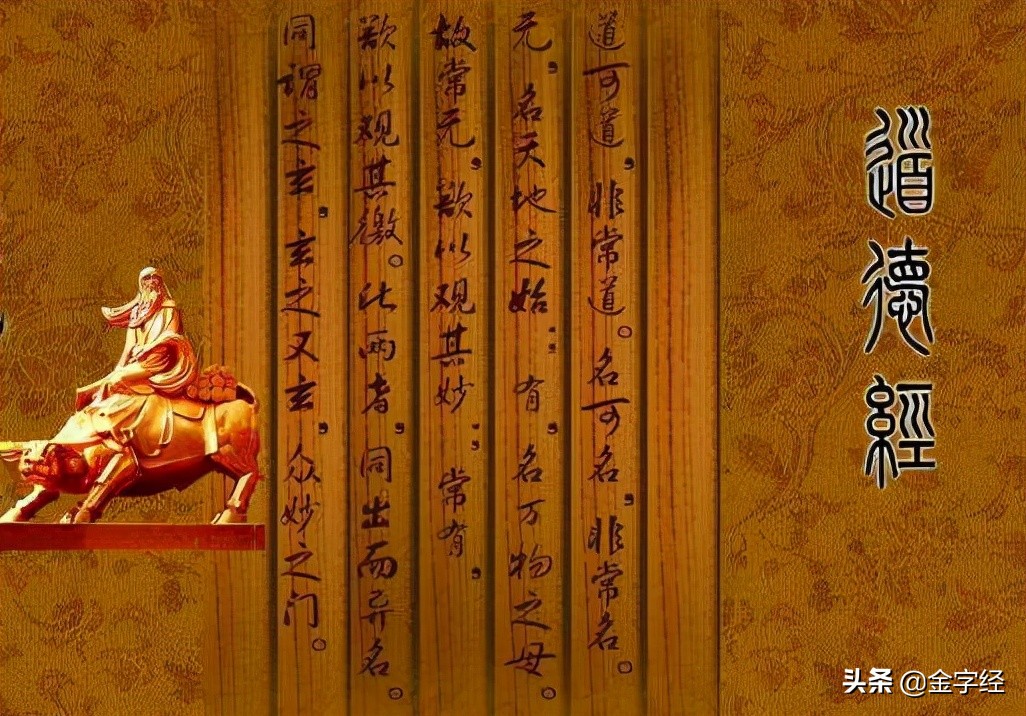 道德經
道可道,非常道。名可名,非常名。
无,名天地之始;有,名万物之母。
故常无,欲以观其妙;常有,
欲以观其徼。此兩者,同出而异名。
同謂之玄,玄之又玄,众妙之门。
头条 @金字经